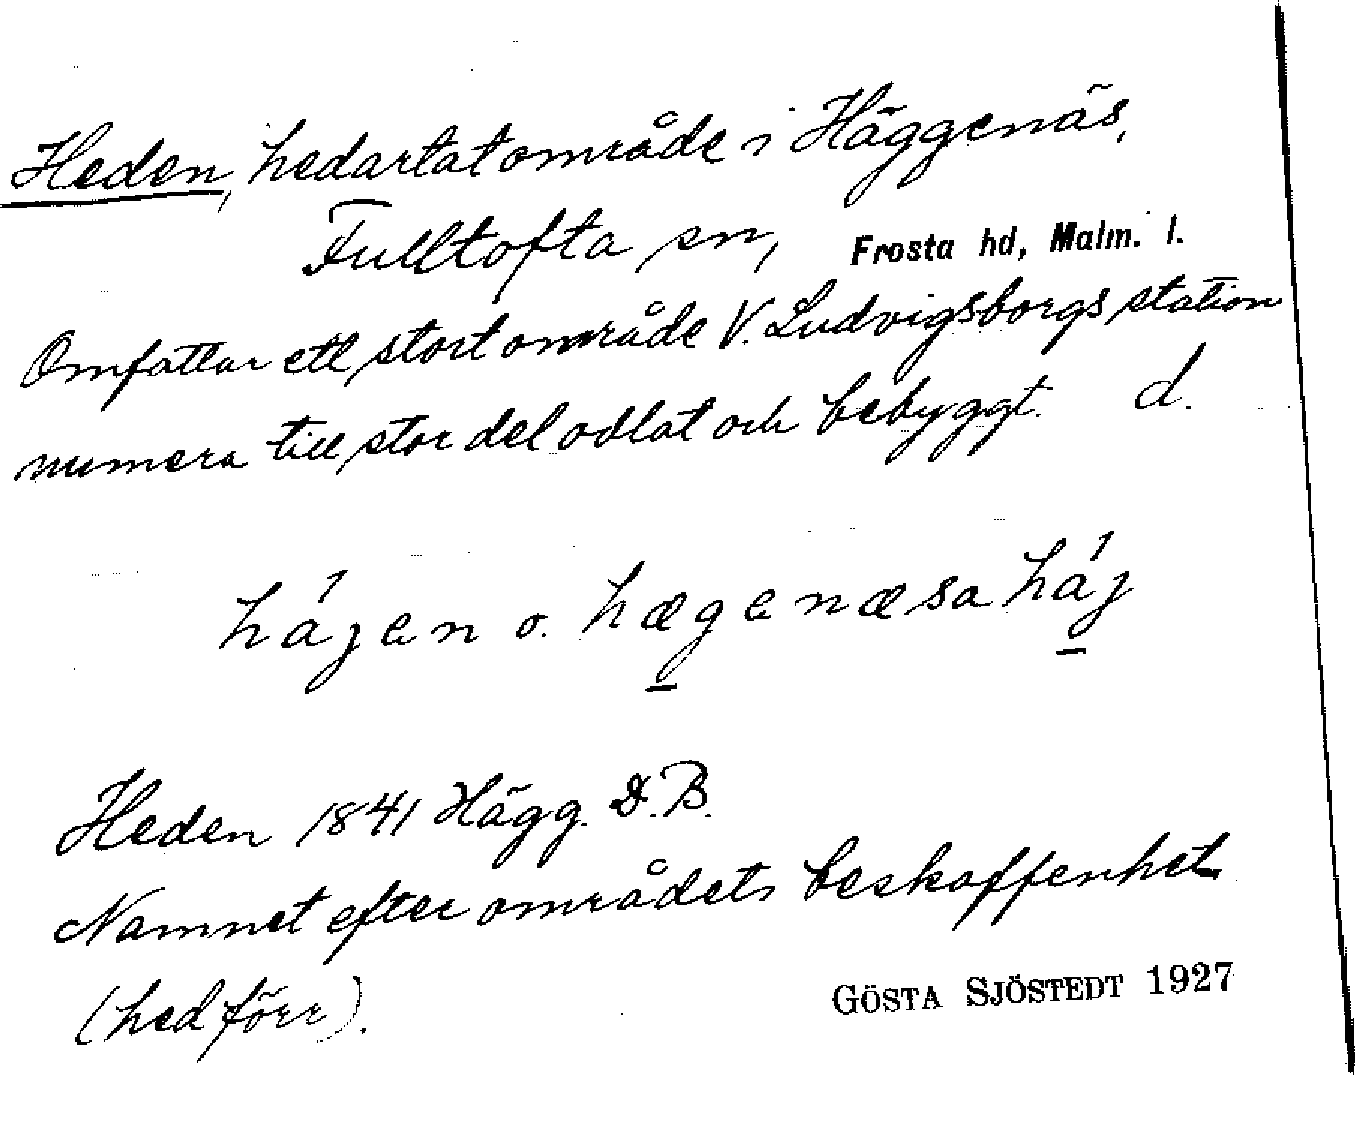 Heden, hedartat område i Häggenäs,
Fulltofta sn, Frosta hd, Malm. l.
Omfattar ett stort område V. Ludvigsborgs station
numera till stor del odlat och bebyggt. d.
hájen o. hægenæsa háj
Heden 1841 Hägg. D.B.
Namnet efter områdets beskaffenhet
(hed förr).
GÖSTA SJÖSTEDT 1927